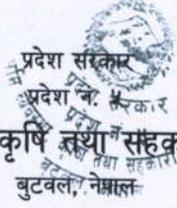 प्रदेश सरकार
प्रदेश नं. ५
कृषि तथा सहक
बुटवल, नेपाल